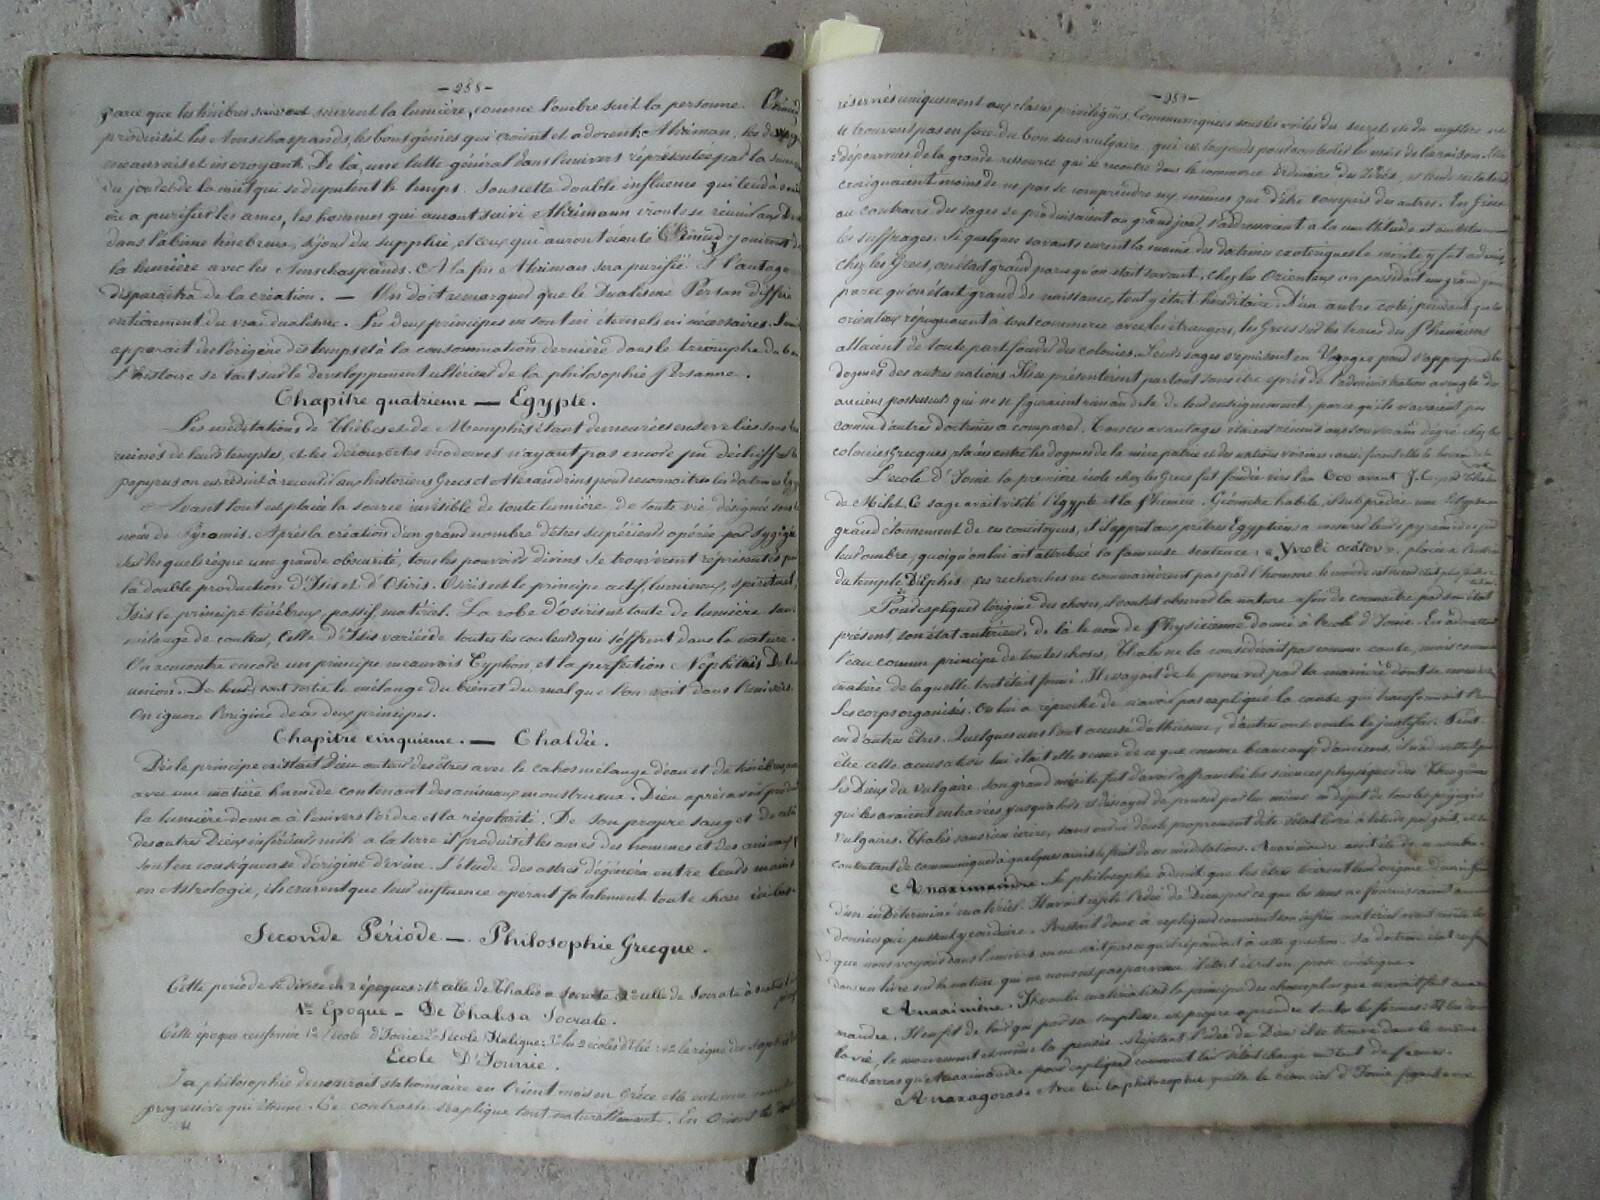 -288-
parce que les ténèbres suivent la lumière, comme l'ombre suit la personne.
produisit les Amschaspands, les bons génies qui croient et adorent; Ahriman, les
mauvais et incroyants. De là, une lutte général dans l'univers réprésentée par la
du jour et de la nuit qui se disputent le temps. Sous cette double influence qui tend à
ou a purifier les ames, les hommes qui auront suivi Ahrimann iront se réunir
dans l'abîme ténébreux, séjour du supplice, et ceux qui auront écouté jouiront de
la lumière avec les Amschaspands. A la fin Ahriman sera purifié
disparaîtra de la création. — On doit remarquer que le Dualisme Persan diffère
entièrement du vrai dualisme. Les deux principes ne sont ni éternels ni nécessaires.
apparait dès l'origine des temps et à la consommation dernière dans le triomphe du
L'histoire se tait sur le développement ultérieur de la philosophie Persanne.
Chapitre quatrieme — Egypte.
Les méditations de Thèbes et de Memphis étant demeurées ensevelies sous les
ruines de leurs temples, et les découvertes modernes n'ayant pas encore pu déchiffrer
papyrus on est réduit à recourir aux historiens Grecs et Alexandrins pour reconnaître les doctrines
Avant tout est placée la source invisible de toute lumière de toute vie désignée sous le
nom de Pyromis. Après la création d'un grand nombre d'êtres supérieurs opérée par Syzygie
sur lesquels règne une grande obscurité, tous les pouvoirs divins se trouvèrent réprésentés par
la double production d'Isis et d'Osiris. Osiris est le principe actif, lumineux, spirituel,
Isis le principe ténébreux, passif, matériel. La robe d'osiris est toute de lumière sans
mélange de couleur, Celle d'Isis variée de toutes les couleurs qui s'offrent dans la nature.
On rencontre encore un principe mauvais Typhon, et la perfection Nephthis De leur
union. De leur sont sortie le mélange du bien et du mal que l'on voit dans l'univers.
On ignore l'origine de ces deux principes.
Chapitre cinquieme. — Chaldée.
Dès le principe existait Dieu auteur des êtres avec le cahos mélange d'eau et de ténèbres,
avec une matière humide contenant des animaux monstrueux. Dieu après avoir produit
la lumière donna à l'univers l'ordre et la régularité. De son propre sang et de celui
des autres Dieux inférieurs mêlé a la terre il produisit les ames des hommes et des animaux
sont en conséquence d'origine divine. L'étude des astres dégénéra entre leurs mains
en Astrologie, ils crurent que leur influence opérait fatalement toute chose ici-bas.
Seconde Période — Philosophie Grecque.
Cette periode se divise en 2 époques: 1re celle de Thalès a Socrate 2e celle de Socrate à
1re Epoque — De Thalès a Socrate.
Cette époque renferme 1o l'école d'Ionie: 2o L'école Italique: 3o les 2 écoles d'Elée: 4o le règne des Sophistes
Ecole D'Ionnie.
La philosophie demeurait stationnaire en Orient mais en Grèce elle eut une marche
progressive qui étonne. Ce contraste s'explique tout naturellement. En Orient
-289-
réservées uniquement aux classes privilégiées, Communiquées sous les voiles du secret et du mystère
se trouvent pas en face du bon sens vulgaire, qui
dépourvues de la grande ressource qui se rencontre dans le commerce Ordinaire des idées,
craignaient moins de ne pas se comprendre eux mêmes que d'être compris des autres. En Grèce
au contraire des sages se produisaient au grand jour, s'adressaient a la multitude et
les suffrages. Si quelques savants eurent la manie des doctrines esotériques le mystère y fut
chez les Grecs, on était grand parce qu'on était savant, chez les Orientaux on passait
parce qu'on était grand de naissance, tout y était héréditaire. D'un autre coté, pendant que les
orientaux répugnaient à tout commerce avec les étrangers, les Grecs sur les traces des Phéniciens
allaient de toute part fonder des colonies. Leurs sages s'épuisent en Voyages pour s'approprier les
dogmes des autres nations. Ils se présentèrent partout sans être épris de l'admiration aveugle des
anciens possesseurs qui ne se figuraient rien au delà de leur enseignement, parce qu'ils n'avaient pas
connu d'autres doctrines a comparer. Tous ces avantages étaient réunis au souverain dégré chez les
colonies Grecques, placées entre les dogmes de la mère patrie et des nations voisines: aussi furent elles le berceau de la
L'école D'Ionie la première école chez les Grecs fut fondée vers l'an 600 avant J. C. par Thalès
de Milet. Ce sage avait visité l'Egypte et la Phénicie. Géomètre habile, il sut prédire une Eclipse au
grand étonnement de ses concitoyens, et il apprit aux prêtres Egyptiens a mesurer leurs pyramides par
leur ombre, quoiqu'on lui ait attribué la fameuse sentence: placée a l'entrée
du temple D'Ephès, ses recherches ne commencèrent pas par l'homme
Pour expliquer l'origine des choses, il voulut observer la nature afin de connaître par son état
présent, son état antérieur, de là le nom de Physicienne donné à l'école d'Ionie. En admettant
l'eau comme principe de toutes choses, Thalès ne la considérait pas comme cause, mais comme
matère de laquelle tout était formé. Il essayait de le prouver par la manière dont se nourrissent
les corps organisés. On lui a réproché de n'avoir pas expliqué la cause qui transformait
en d'autres êtres. Quelques uns l'ont accusé d'athéisme, d'autres ont voulu le justifier. Peut
être cette accusation lui était elle venue de ce que comme beaucoup d'anciens, il
les Dieux du vulgaire. Son grand mérite fut d'avoir affranchi les sciences physiques des Théogonies
qui les avaient entravées jusqu'alors, et d'essayer de penser par lui même en dépit de tous les préjugés
vulgaires. Thalès sans rien écrire, sans ouvrir d'école proprement dite s'était livré à l'étude par goût, et se
contentant de communiquer à quelques amis le fruit de ses méditations. Anaximandre avait été de ce nombre.
Anaximandre. Ce philosophe admit que les êtres tirèrent leur origine
d'un indéterminé matériel. Il avait rejeté l'idée de Dieu parce que les sens ne fournissaient aucune
données qui pussent y conduire. Restait donc à expliquer comment son infini matériel avait
que nous voyons dans l'univers on ne sait pas ce qu'il répondait à cette question. Sa doctrine était
dans un livre sur la nature, qui ne nous est pas parvenu, il était écrit en prose
Anaximène. Il voulu matérialiser le principe des choses plus que n'avait fait Anaxi-
mandre. Il en fit de l'air qui par sa souplesse est propre a prendre toutes les formes: Il lui donna
la vie, le mouvement et même la pensée. Rejetant l'idée de Dieu il se trouve dans le même
embarras qu'Anaximandre pour expliquer comment l'air s'était changé en tant de formes.
Anaxagoras. Avec lui la philosophie quitta le beau ciel d'Ionie